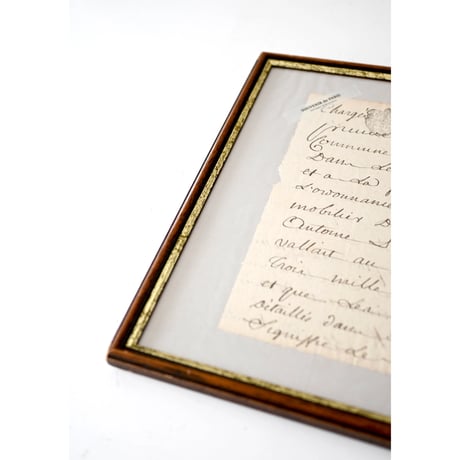 SOUVENIR de PARIS
Chargé
Commune
Dans Le
et a La
L'ordonnance
mobilier D
Antoine
vallait au
Trois mille
et que Lea
Détaillés dans
Signiffie Le